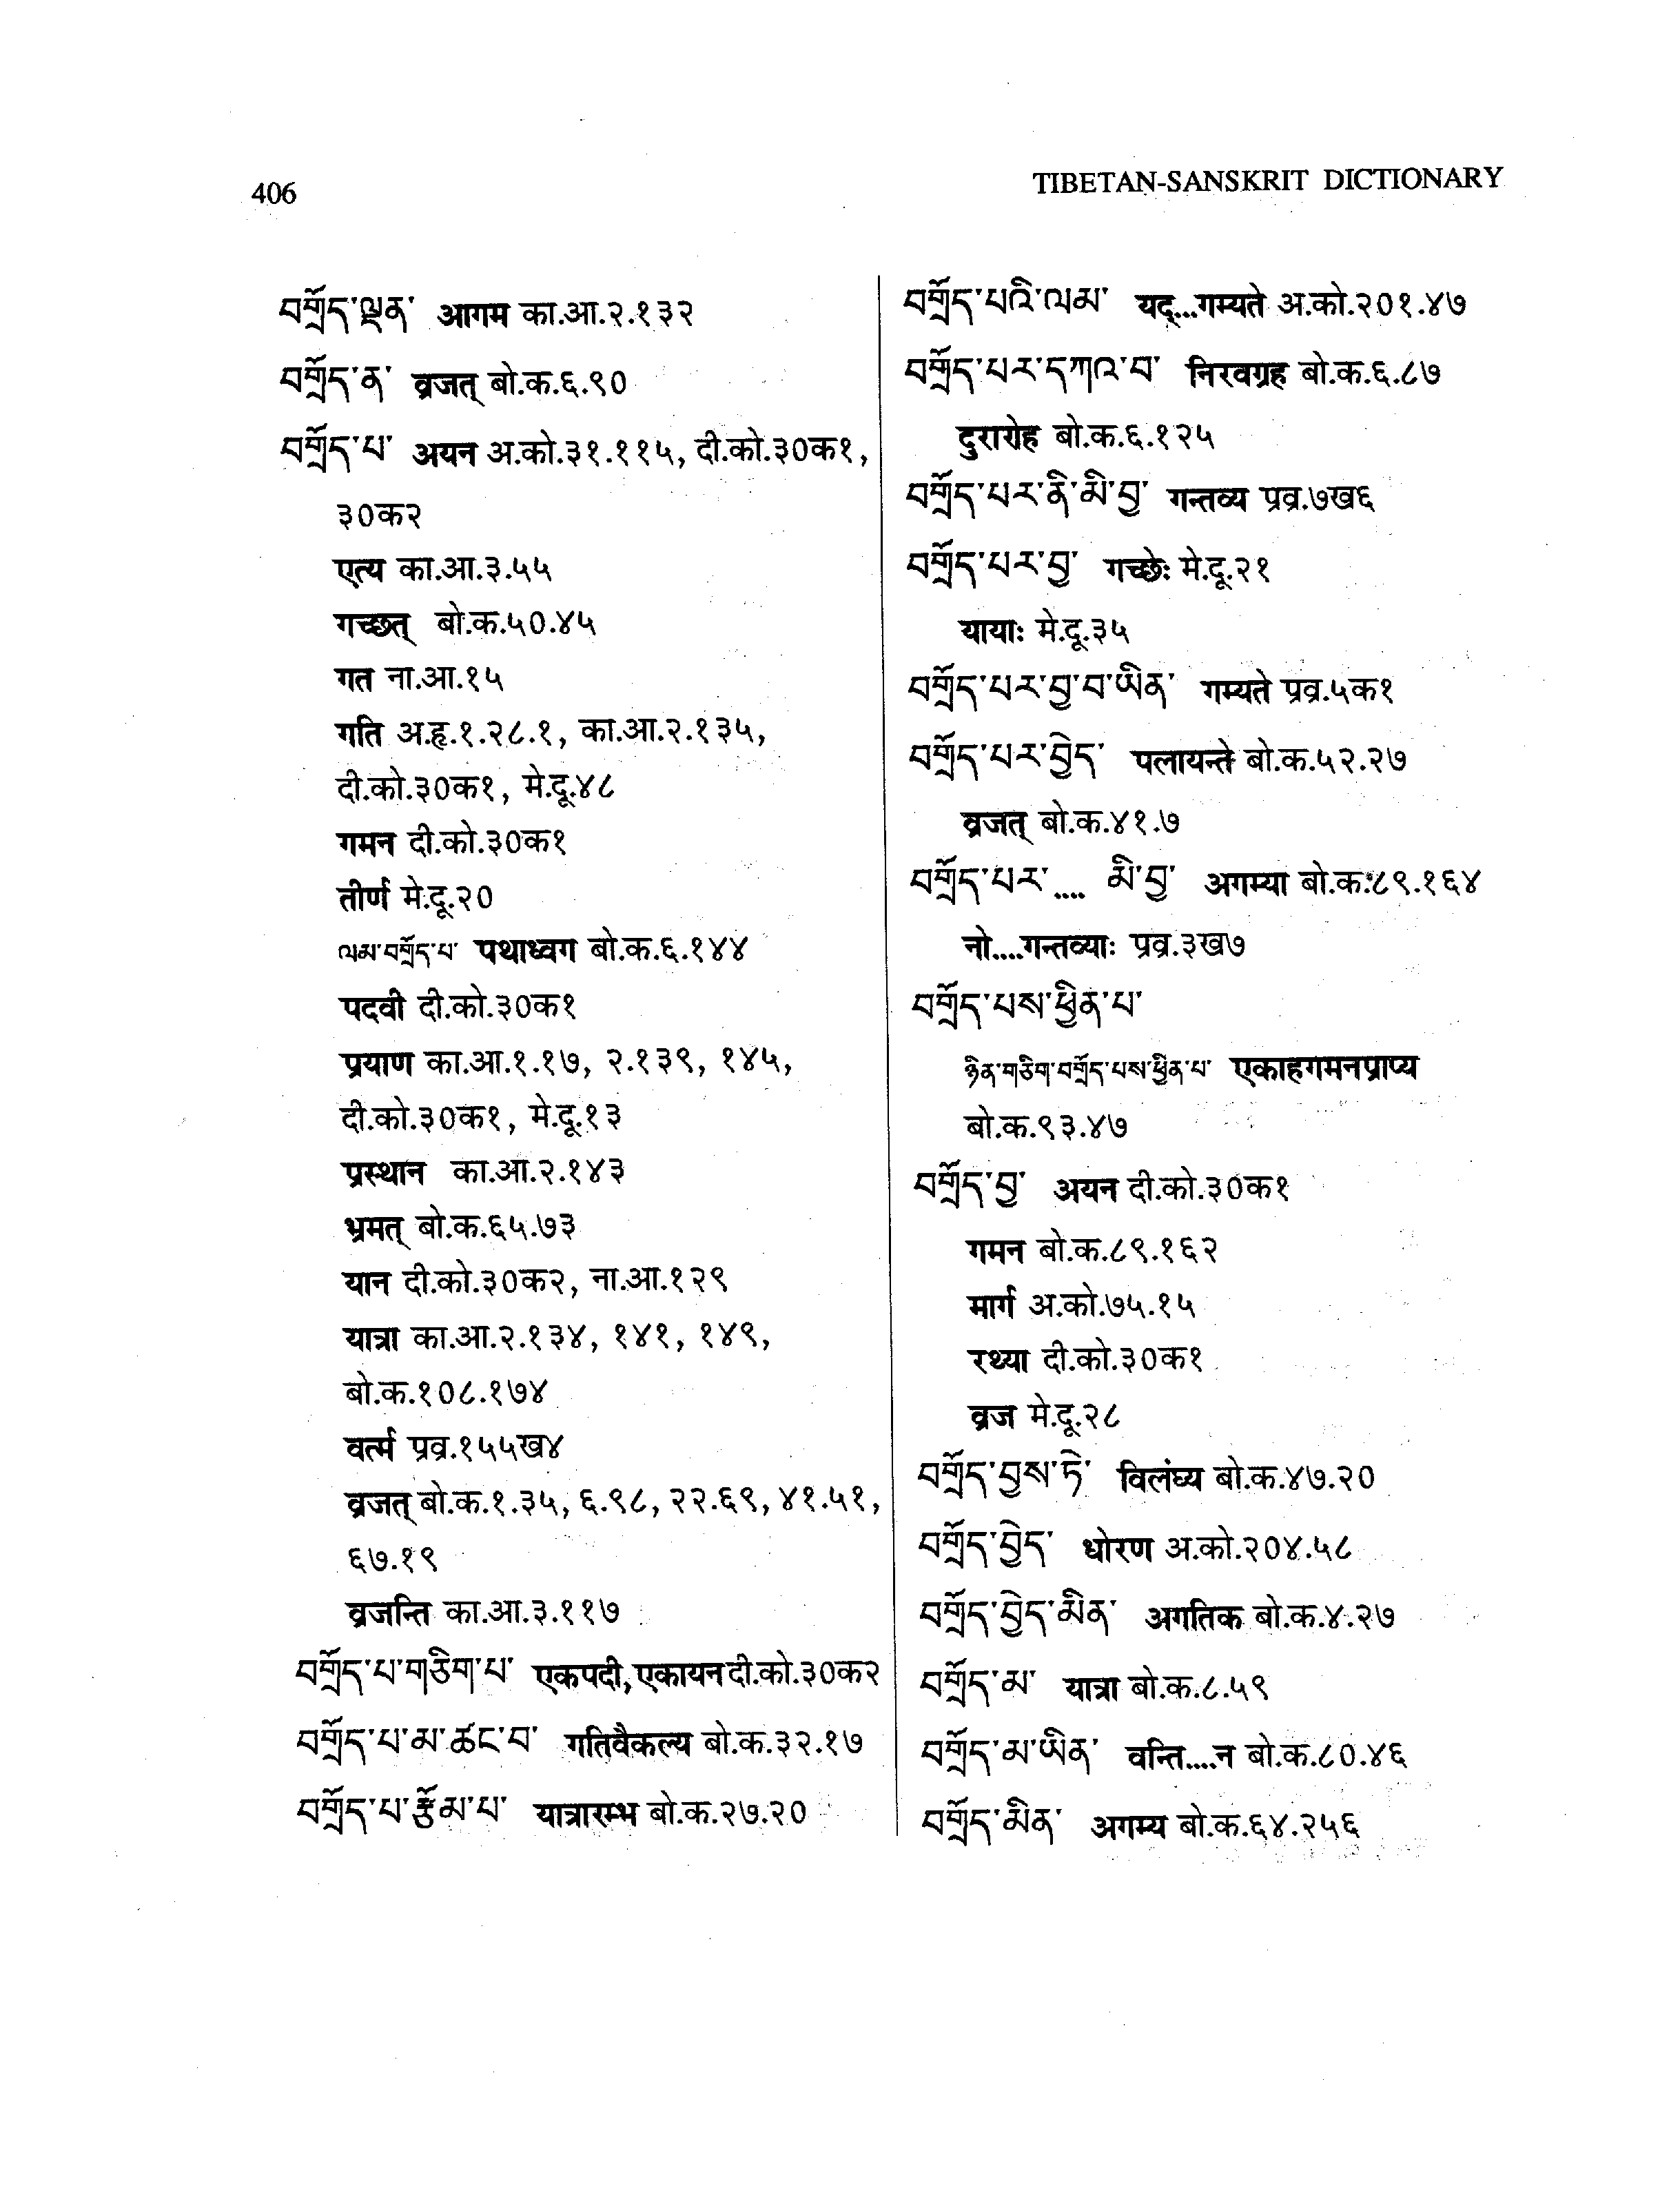 406
TIBETAN-SANSKRIT DICTIONARY
བགྲོད་ལྡན་ आगम का.आ.२.१३२
བགྲོད་ན་ व्रजत् बो.क.६.९०
བགྲོད་པ་ अयन अ.को.३१.११५, दी.को.३०क१,
३०क२
एत्य का.आ.३.५५
गच्छत् बो.क.५०.४५
गत ना.आ.१५
गति अ.हृ.१.२८.१, का.आ.२.१३५,
दी.को.३०क१, मे.दू.४८
गमन दी.को.३०क१
तीर्ण मे.दू.२०
ལམ་བགྲོད་པ་ पथाध्वग बो.क.६.१४४
पदवी दी.को.३०क१
प्रयाण का.आ.१.१७, २.१३९, १४५,
दी.को.३०क१, मे.दू.१३
प्रस्थान का.आ.२.१४३
भ्रमत् बो.क.६५.७३
यान दी.को.३०क२, ना.आ.१२९
यात्रा का.आ.२.१३४, १४१, १४९,
बो.क.१०८.१७४
वर्त्म प्रव्र.१५५ख४
व्रजत् बो.क.१.३५, ६.९८, २२.६९, ४१.५१,
६७.१९
व्रजन्ति का.आ.३.११७
བགྲོད་པ་གཅིག་པ་ एकपदी, एकायन दी.को.३०क२
བགྲོད་པ་མ་ཚང་བ་ गतिवैकल्य बो.क.३२.१७
བགྲོད་པ་རྩོམ་པ་ यात्रारम्भ बो.क.२७.२०
བགྲོད་པའི་ལམ་ यद्...गम्यते अ.को.२०१.४७
བགྲོད་པར་དཀའ་བ་ निरवग्रह बो.क.६.८७
दुरारोह बो.क.६.१२५
བགྲོད་པར་ནི་མི་བྱ་ गन्तव्य प्रव्र.७ख६
བགྲོད་པར་བྱ་ गच्छेः मे.दू.२१
यायाः मे.दू.३५
བགྲོད་པར་བྱ་བ་ཡིན་ गम्यते प्रव्र.५क१
བགྲོད་པར་བྱེད་ पलायन्ते बो.क.५२.२७
व्रजत् बो.क.४१.७
བགྲོད་པར་.... མི་བྱ་ अगम्या बो.क.८९.१६४
नो....गन्तव्याः प्रव्र.३ख७
བགྲོད་པས་ཕྱིན་པ་
ཉིན་གཅིག་བགྲོད་པས་ཕྱིན་པ་ एकाहगमनप्राप्य
बो.क.९३.४७
བགྲོད་བྱ་ अयन दी.को.३०क१
गमन बो.क.८९.१६२
मार्ग अ.को.७५.१५
रथ्या दी.को.३०क१
व्रज मे.दू.२८
བགྲོད་བྱས་ཏེ་ विलंघ्य बो.क.४७.२०
བགྲོད་བྱེད་ धोरण अ.को.२०४.५८
བགྲོད་བྱེད་མིན་ अगतिक बो.क.४.२७
བགྲོད་མ་ यात्रा बो.क.८.५९
བགྲོད་མ་ཡིན་ वन्ति....न बो.क.८०.४६
བགྲོད་མིན་ अगम्य बो.क.६४.२५६